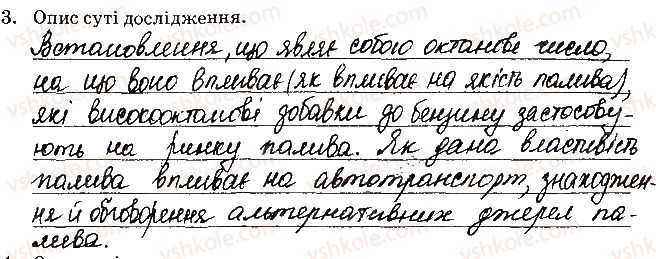 3. Опис суті дослідження.
Встановлення, що являє собою октанове число,
на що воно впливає (як впливає на якість палива),
які високооктанові добавки до бензину застосову-
ють на ринку палива. Як дана властивість
палива впливає на автотранспорт, знаходжен-
ня й обговорення альтернативних джерел па-
лива.
vshkole.com